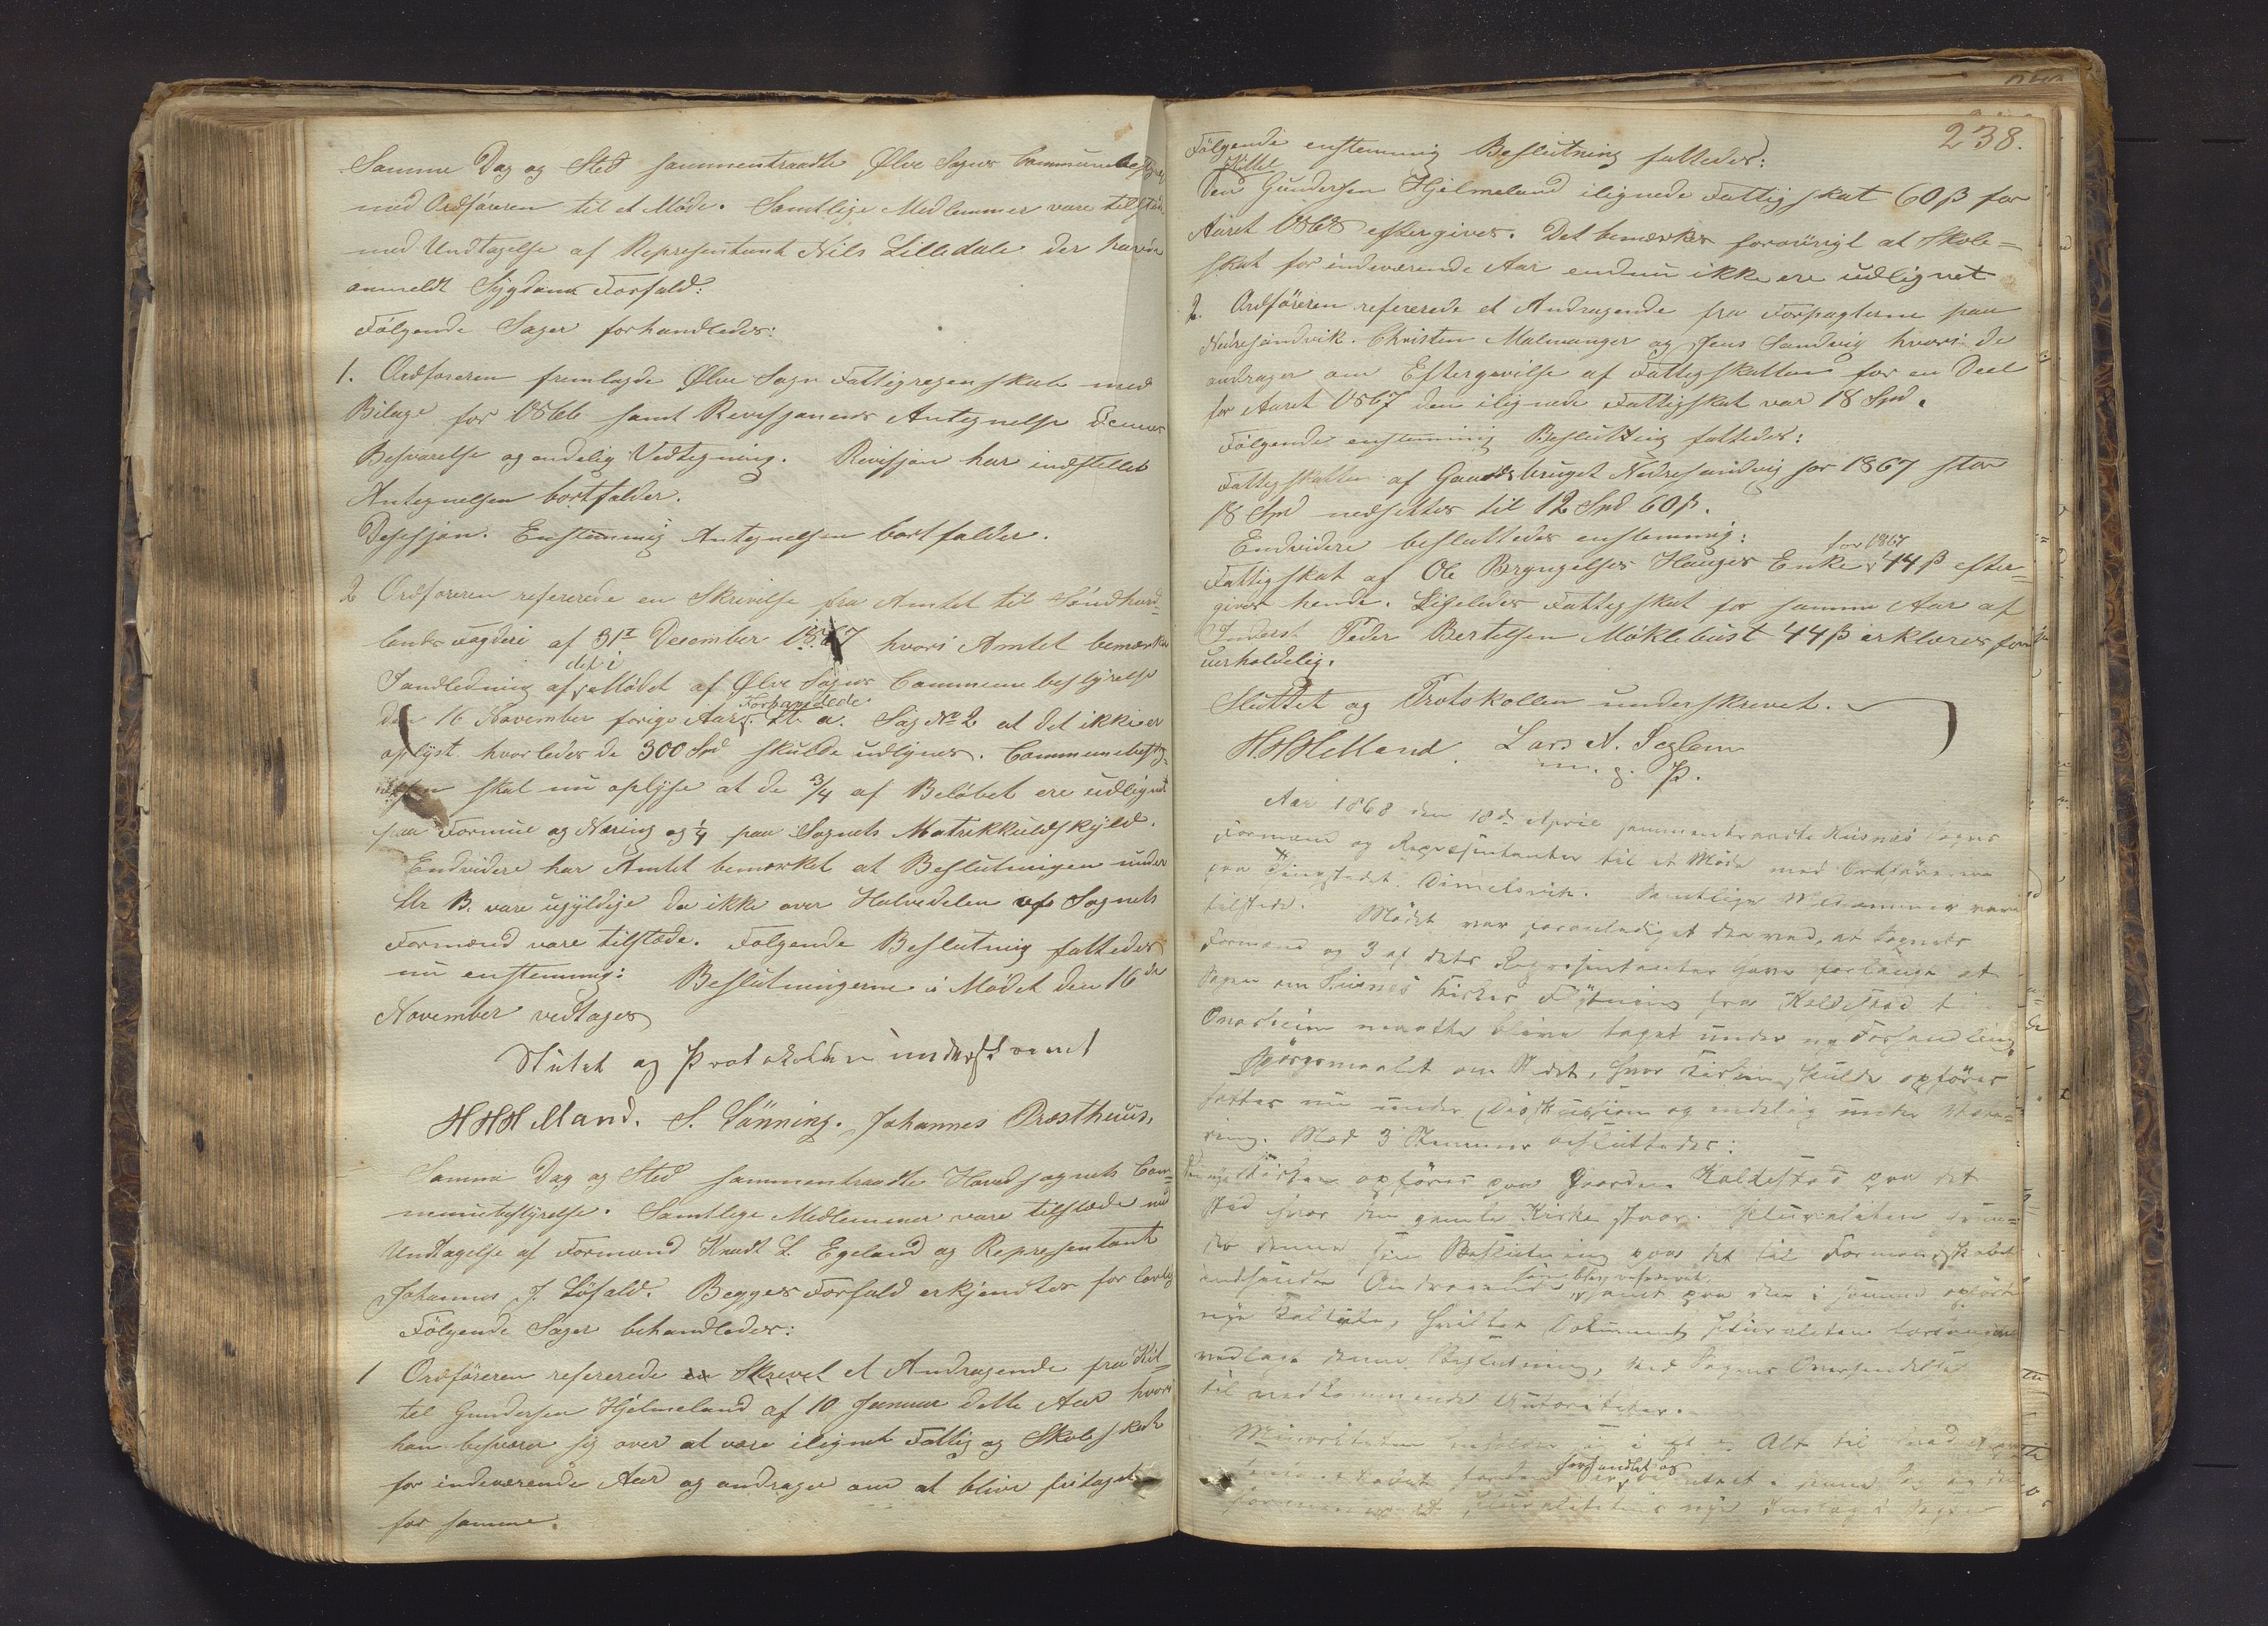 Samme Dag og Sted sammentraadte Ølve Sogns Communebestyrelse
med Ordføreren til et Møde. Samtlige Medlemmer vare tilstede
med Undtagelse af Repræsentant Nils Lilledale der havde
anmeldt Sygdoms Forfald.
Følgende Sager forhandledes:
1. Ordføreren fremlagde Ølve Sogn Fattigregenskab med
Bilage for 1866 samt Revisjonens Antegnelse dennes
Besvarelse og endelig Vedtegning. Revisjon har indstillet
Antegnelsen bortfalder.
Desisjon. Enstemmig Antegnelsen bortfalder.
2 Ordføreren refererede en Skrivelse fra Amtet til Søndhord-
lands Fogderi af 31te Desember 1867 hvori Amtet bemærker
det i
I andledning af Mødet af Ølve Sogns Commune bestyrelse
Forhandlede
den 16 November forige Aar Lt. a. Sag No 2 at det ikki er
oplyst hvorledes de 300 Spd skulde udlignes. Communebesty-
relsen skal nu oplyse at de 3/4 af Beløbet ere udlignet
paa Formue og Næring og 1/4 paa Sognets Matrikkulskyld.
Endvidere har Amtet bemærket at Beslutningen under
Ltr B. vare ugyldige da ikke over Halvedelen af Sognets
Formænd vare tilstæde. Følgende Beslutning fattedes
nu enstemmig: Beslutningerne i Mødet den 16de
November vedtages
Slutet og Protokollen underskrevet
HHHelland. S. Sønning. Johannes Præsthuus,
Samme Dag og Sted sammentraadte Hovedsognets Com-
munebestyrelse. Samtlige Medlemmer vare tilstæde med
Undtagelse af Formand Knudt L. Egeland og Repræsentant
Johannes J. Løfald. Begges Forfald erkjendtes for lovlig
Følgende Sager behandledes:
1 Ordføreren refererede en Skrevet et Andragende fra Kit-
tel Gundersen Hjelmeland af 10 Januar dette Aar hvori
han besværer sig over at være ilignet Fattig og Skoleskat
for indeværende Aar og andrager om at blive fritaget
for samme.
238.
Følgende enstemmig Beslutning fattedes:
Kittel
Den Gundersen Hjelmeland ilignede Fattigskat 60 β for
Aaret 1868 eftergives. Det bemærkes forøvrigt at Skole-
skat for indeværende Aar endnu ikke ere udlignet
2. Ordføreren refererede et Andragende fra Forpagterne paa
Nedresandvik. Christen Malmanger og Jens Sandvig hvori de
andrager om Eftergivelse af Fattigskatten for en Deel
for Aaret 1867 den ilignede Fattigskat var 18 Spd.
Følgende enstemmig Beslutting fattedes:
Fattigskatten af Gaardsbruget Nedresandvig for 1867 stor
18 Spd nedsættes til 12 Spd 60 β.
Endvidere besluttedes enstemmig:
for 1867
Fattigskat af Ole Bryngelses Hauges Enke 44 β efter-
gives hende. Ligeledes Fattigskat for samme Aar af
Inderst Peder Bertelsen Møklebust 44 β erklæres for
uerholdelig.
Sluttet og Protokollen underskrevet.
HHHelland. Lars N. Teglem
m. p. P.
Aar 1868 den 18de April sammentraadte Huusnes Sogns
Formænd og Repræsentanter til et Møde med Ordføreren
paa Thingstedet Dimelsvik. Samtlige Medlemmer vare
tilstede. Mødet var foranlediget derved, at Sognets
Formænd og 3 af dets Repræsentanter have forlangt at
Sagen om Huusnes Kirkes Flytning fra Kaldestad til
Onarheim maatte blive taget under ny Forhandling
Spørgsmaalet om Stedet, hvor Kirken skulde opføres
sattes nu under Diskussion og endelig under Votering.
Med 3 Stemmer besluttedes:
Den nye Kirke opføres paa Gaarden Kaldestad paa det
Sted hvor den gamle Kirke staar. Pluraliteten grun-
der denne sin Beslutning paa det til Formandskabet
som blev refereret
indsendte Andragende, samt paa den i samme opførte
nye Taltste, hvilket Dokument Pluraliteten forlanger
vedlagt denne Beslutning, ved Sagens Oversendelse
til vedkommende Autoriteter.
Minoriteten henholder sig i Et og Alt til hvad
forhandlet og